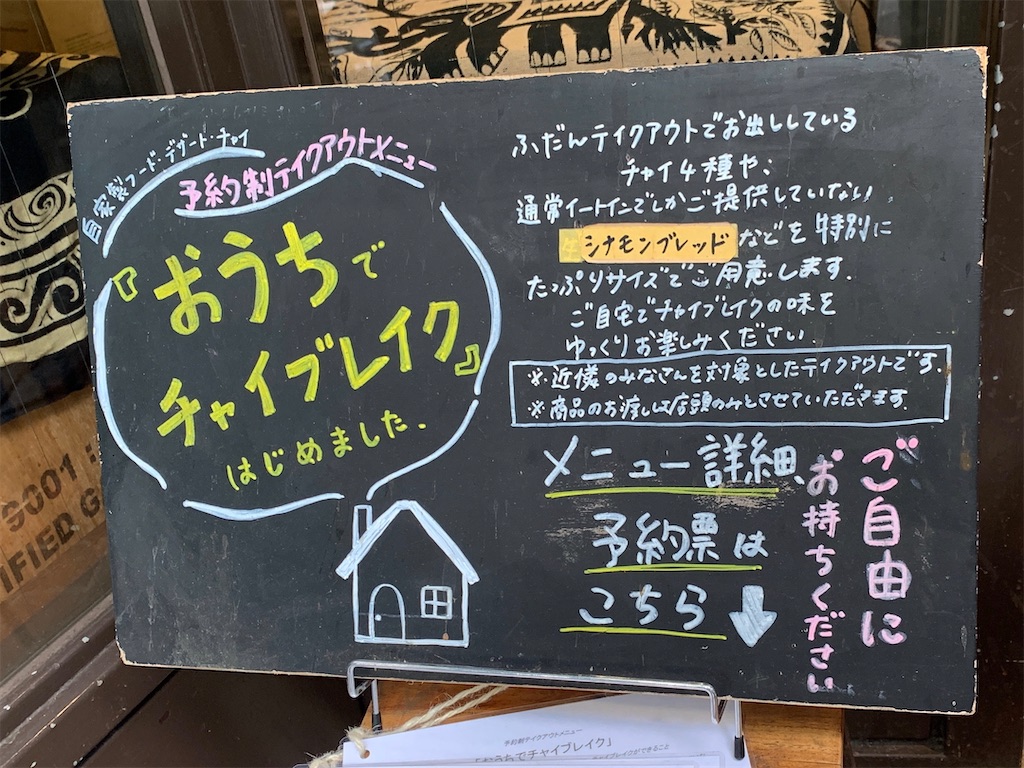 自家製フード・デザート・チャイ
予約制テイクアウトメニュー
『おうちで
チャイブレイク』
はじめました.
ふだんテイクアウトでお出ししている
チャイ4種や、
通常イートインでしかご提供していない
シナモンブレッドなどを特別に
たっぷりサイズでご用意します.
ご自宅でチャイブレイクの味を
ゆっくりお楽しみください
※近隣のみなさんを対象としたテイクアウトです.
※商品のお渡しは店頭のみとさせていただきます.
メニュー詳細、
予約票は
こちら
ご自由に
お持ちください
9001:
IFIED G
予約制テイクアウトメニュー
「おうちでチャイブレイク」